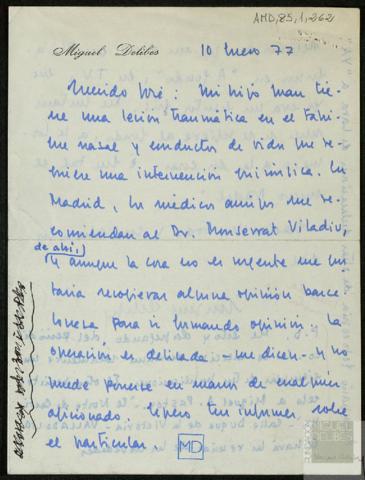 AMD, 85, 1, 262
Miguel Delibes
10 Enero 77
Querido José: Mi hijo Juan tie-
ne una lesión traumática en el tabi-
que nasal y conductos de vida que re-
quiere una intervención quirúrgica. En
Madrid, los médicos amigos me re-
comiendan al Dr. Monserrat Viladiu,
de ahí,
y aunque la cosa no es urgente me gus-
taría recogieras alguna opinión barce-
lonesa para ir formando opinión. La
operación es delicada —me dicen— y no
puedo ponerse en manos de cualquier
aficionado. Espero tus informes sobre
el particular.
MD
MIGUEL
DELIBES